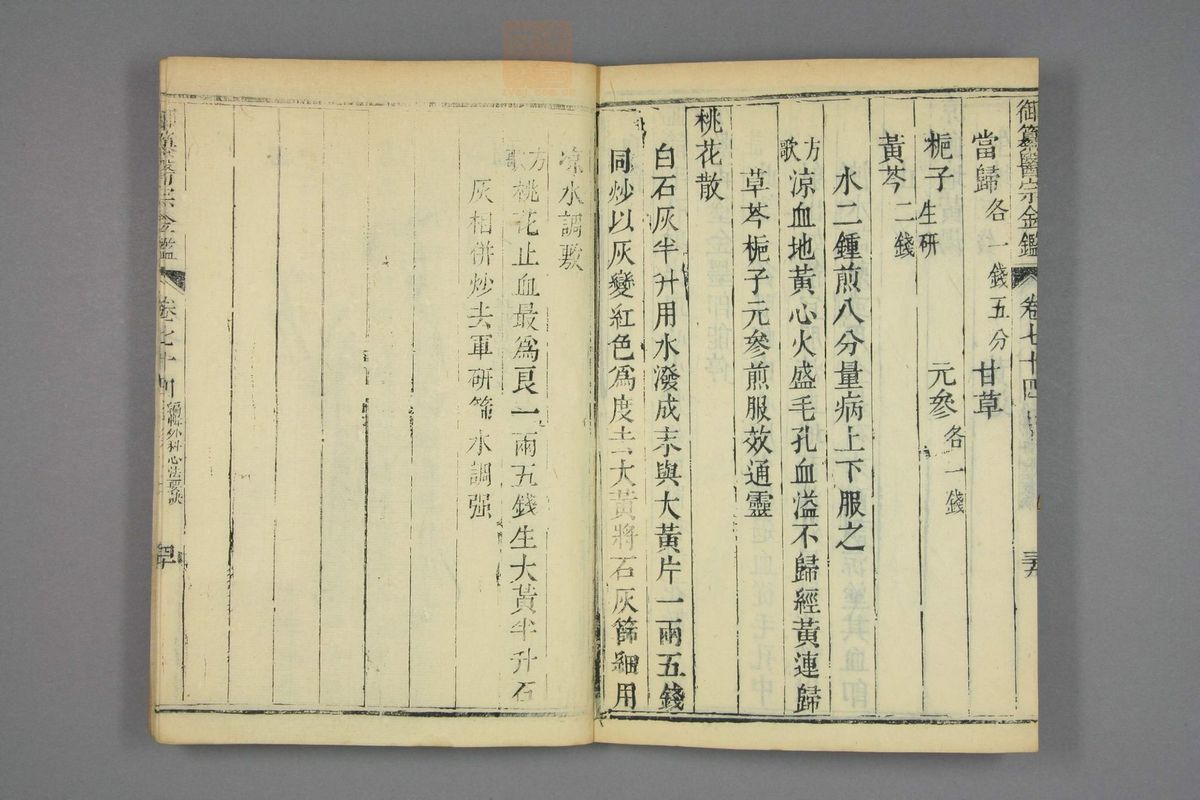 御纂醫宗金鑑 卷七十四 三九
當歸各一錢五分 甘草
梔子生研 元參各一錢
黃芩二錢
水二鍾煎八分量病上下服之
方歌 涼血地黃心火盛毛孔血溢不歸經黃連歸
草芩梔子元參煎服效通靈
桃花散
白石灰半升用水潑成末與大黃片一兩五錢
同炒以灰變紅色爲度去大黃將石灰篩細用
凉水調敷
方歌 桃花止血最爲良一兩五錢生大黃半升石
灰相併炒去軍研篩水調强
御纂醫宗金鑑 卷七十四 編輯外科心法要訣 四十